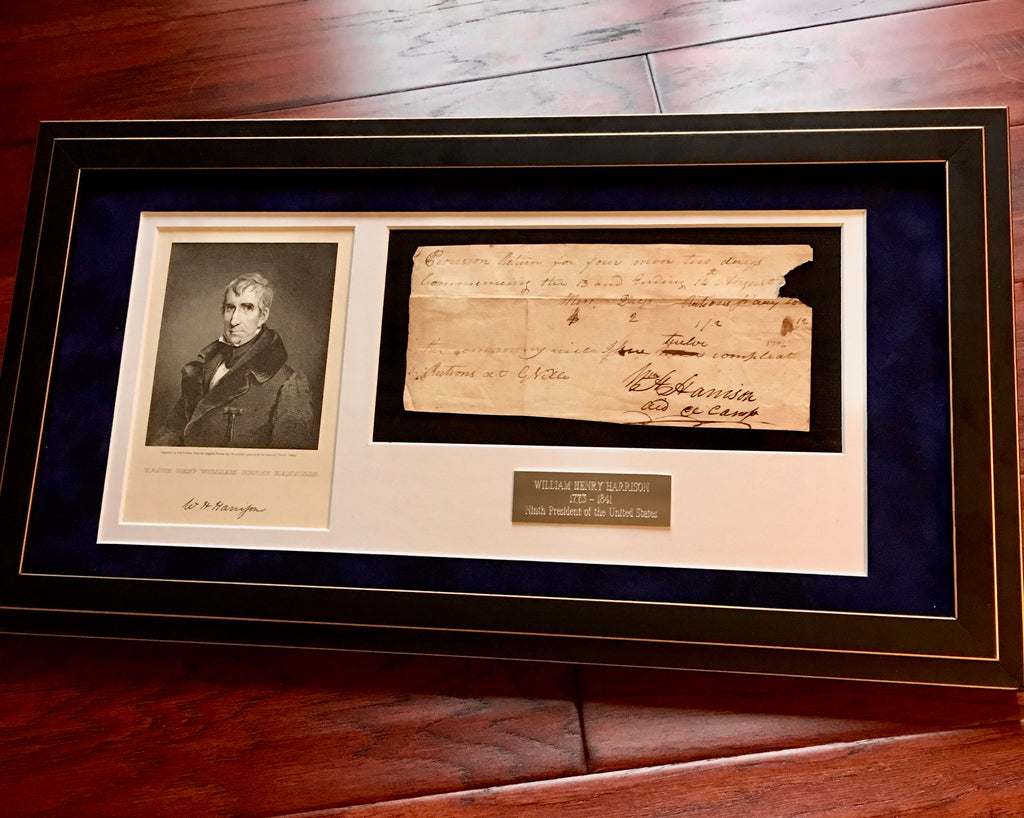 MAJOR GENL. WILLIAM HENRY HARRISON.
W H Harrison
Provision Return for four men two days
Commencing the 13 and Ending 14th August
Men Days Rations pr day
4 2 1 1/2 12
the will twelve compleat
Rations at
Wm H Harrison
aid de Camp
WILLIAM HENRY HARRISON
1773 - 1841
Ninth President of the United States